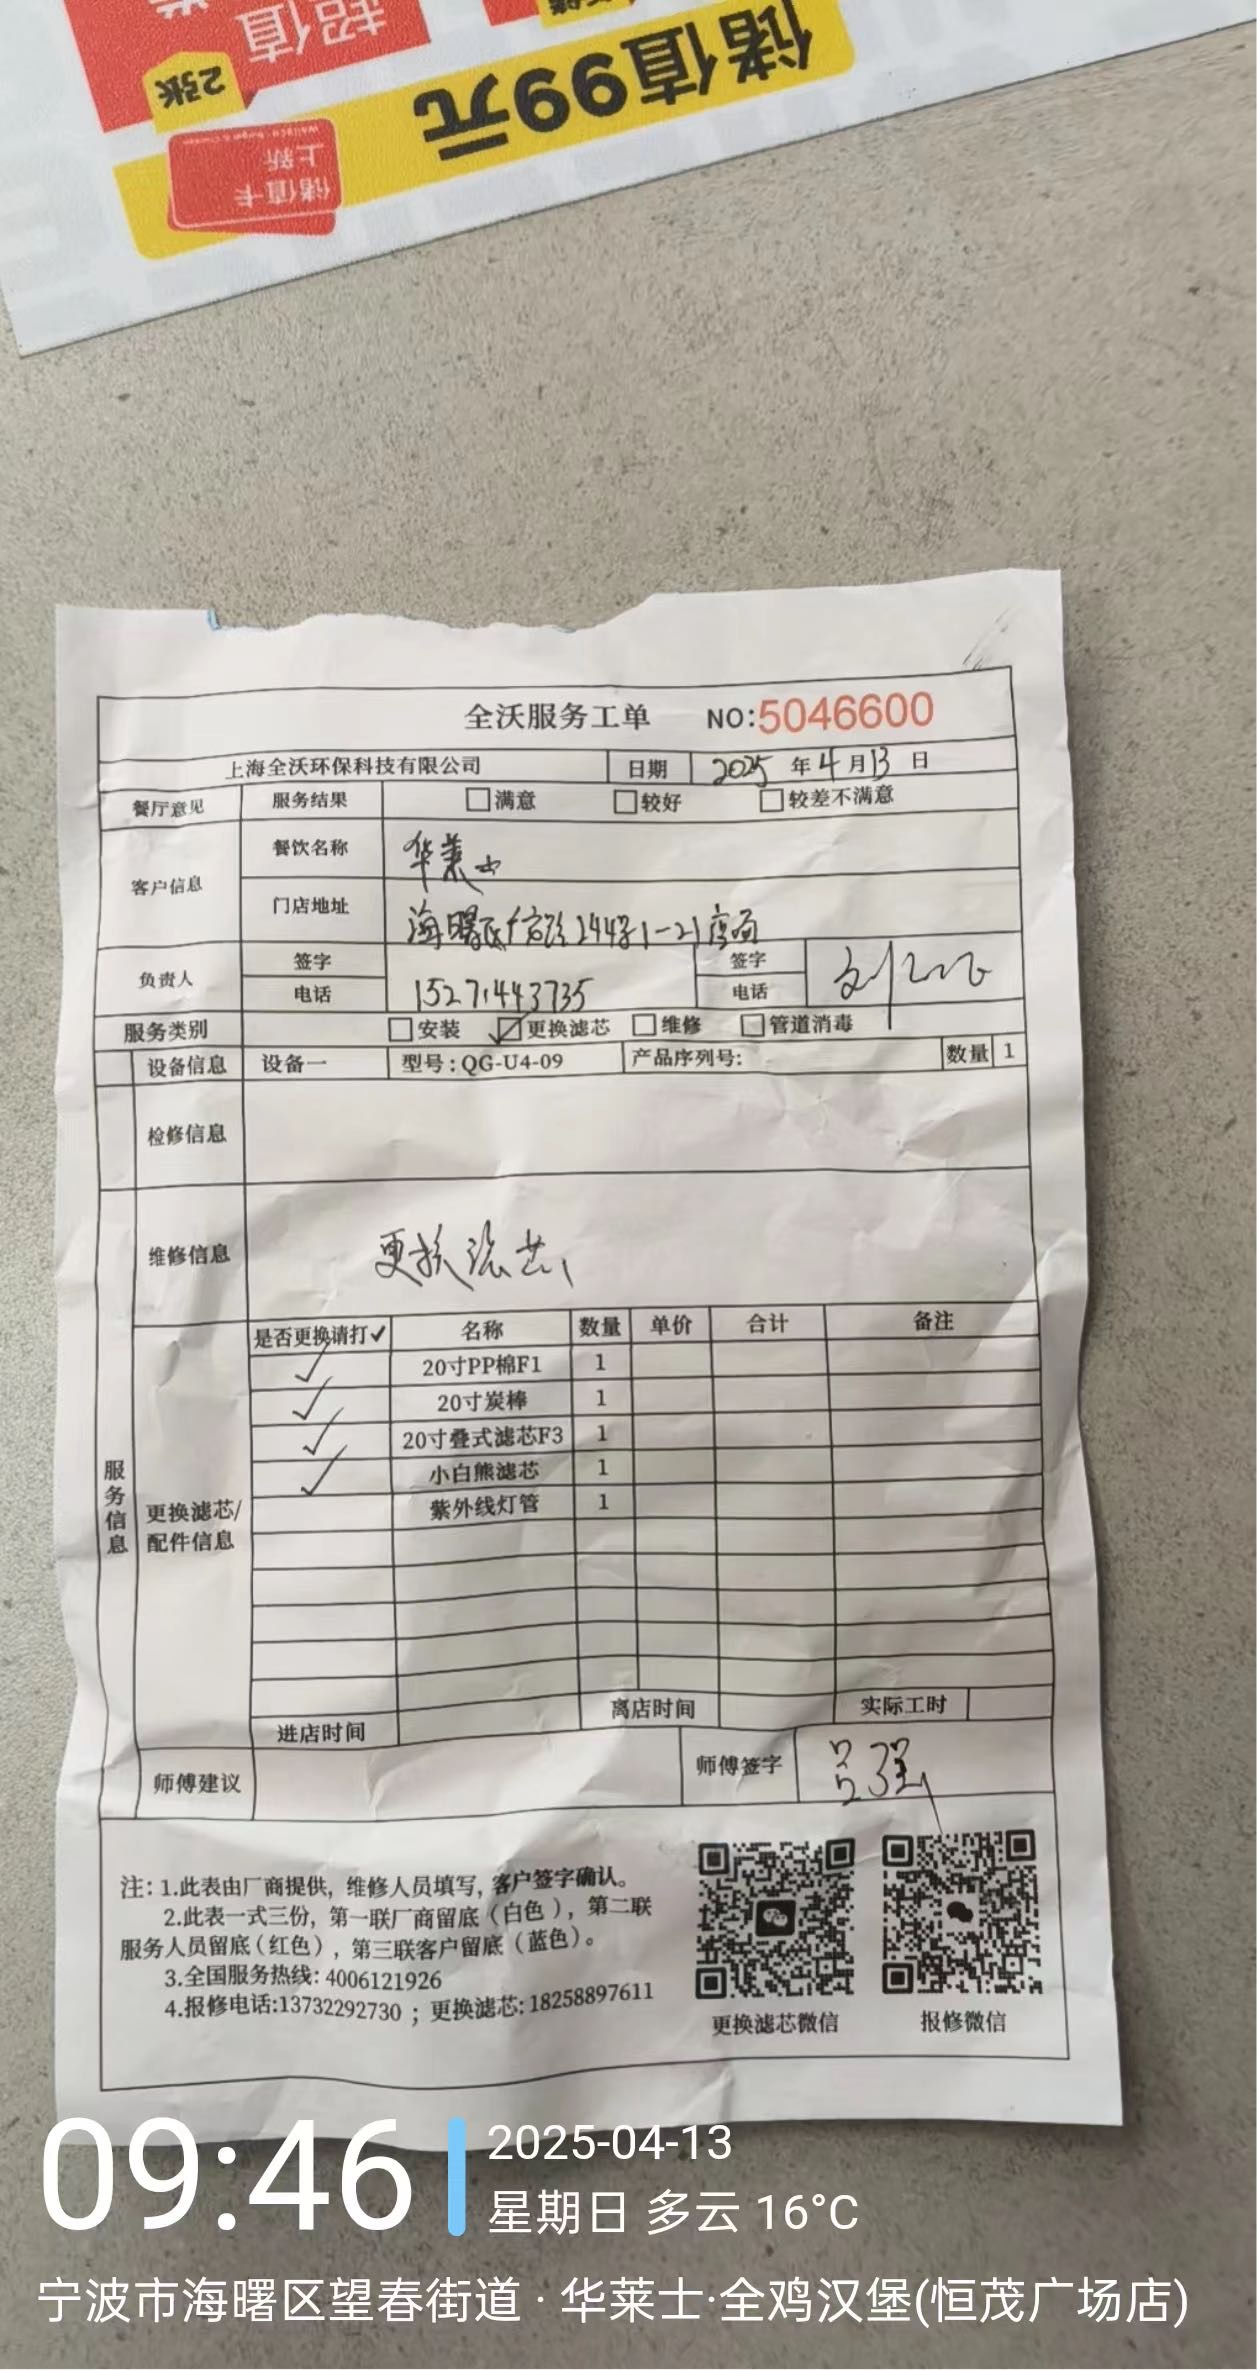 储值99元
超值
2张
储值卡
上新
全沃服务工单 NO:5046600
上海全沃环保科技有限公司 日期 2025 年 4 月 13 日
餐厅意见 服务结果 满意 较好 较差不满意
客户信息 餐饮名称 华莱士
门店地址 海曙区 244号1-21店面
负责人 签字 签字
电话 15271443735 电话
服务类别 安装 更换滤芯 维修 管道消毒
设备信息 设备一 型号:QG-U4-09 产品序列号: 数量 1
检修信息
维修信息 更换滤芯
服务信息
更换滤芯/
配件信息
是否更换请打✓ 名称 数量 单价 合计 备注
✓ 20寸PP棉F1 1
✓ 20寸炭棒 1
✓ 20寸叠式滤芯F3 1
✓ 小白熊滤芯 1
紫外线灯管 1
进店时间 离店时间 实际工时
师傅建议 师傅签字 吕强
注: 1.此表由厂商提供, 维修人员填写, 客户签字确认。
2.此表一式三份, 第一联厂商留底(白色), 第二联
服务人员留底(红色), 第三联客户留底(蓝色)。
3.全国服务热线: 4006121926
4.报修电话:13732292730 ; 更换滤芯: 18258897611
更换滤芯微信 报修微信
09:46 2025-04-13
星期日 多云 16°C
宁波市海曙区望春街道 · 华莱士·全鸡汉堡(恒茂广场店)